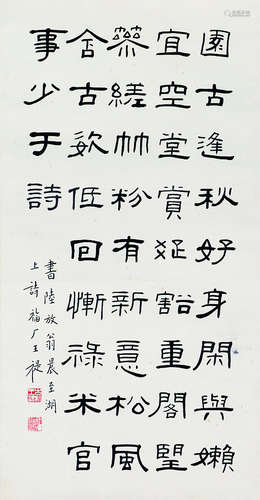 園古逢秋好身閑與嬾
宜空堂賞延豁重閣朢
篸縒竹粉有新意松風
含古姿低回慚祿米官
事少于詩
書陸放翁晨至湖
上詩福厂王禔